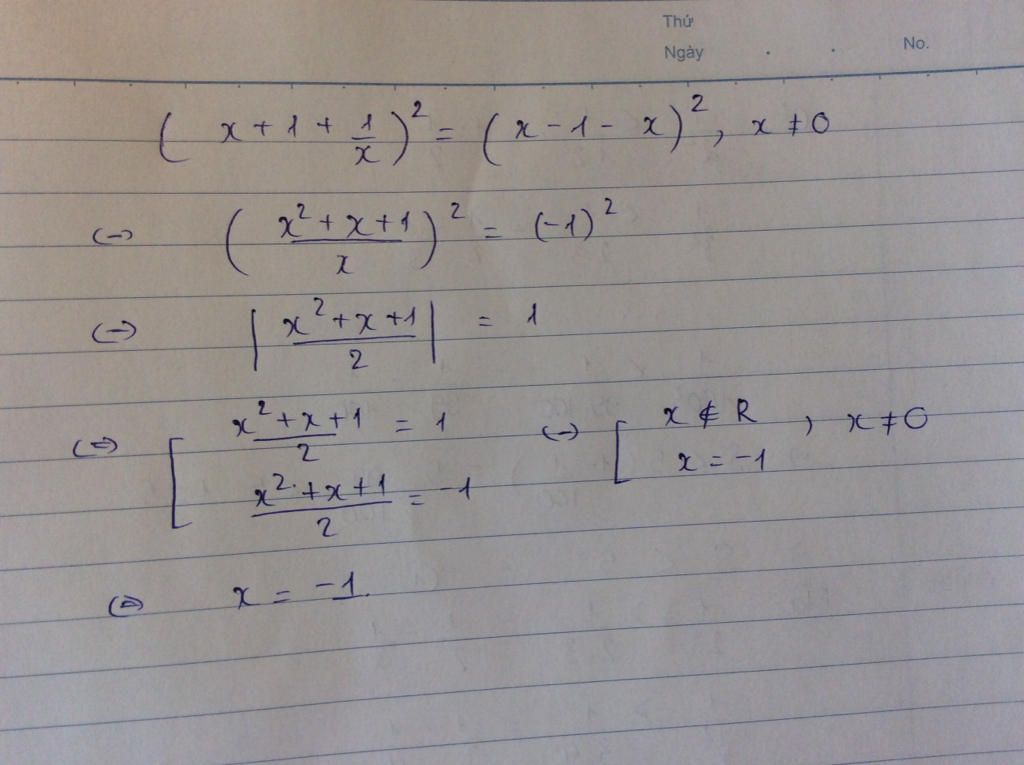 Thứ
Ngày . . No.
( x + 1 + 1/x )² = ( x - 1 - x )², x ≠ 0
(-) ( (x² + x + 1)/x )² = (-1)²
(-) | (x² + x + 1)/2 | = 1
(=) [ (x² + x + 1)/2 = 1 (-) [ x ∉ R , x ≠ 0
(x² + x + 1)/2 = -1 x = -1
(=) x = -1.